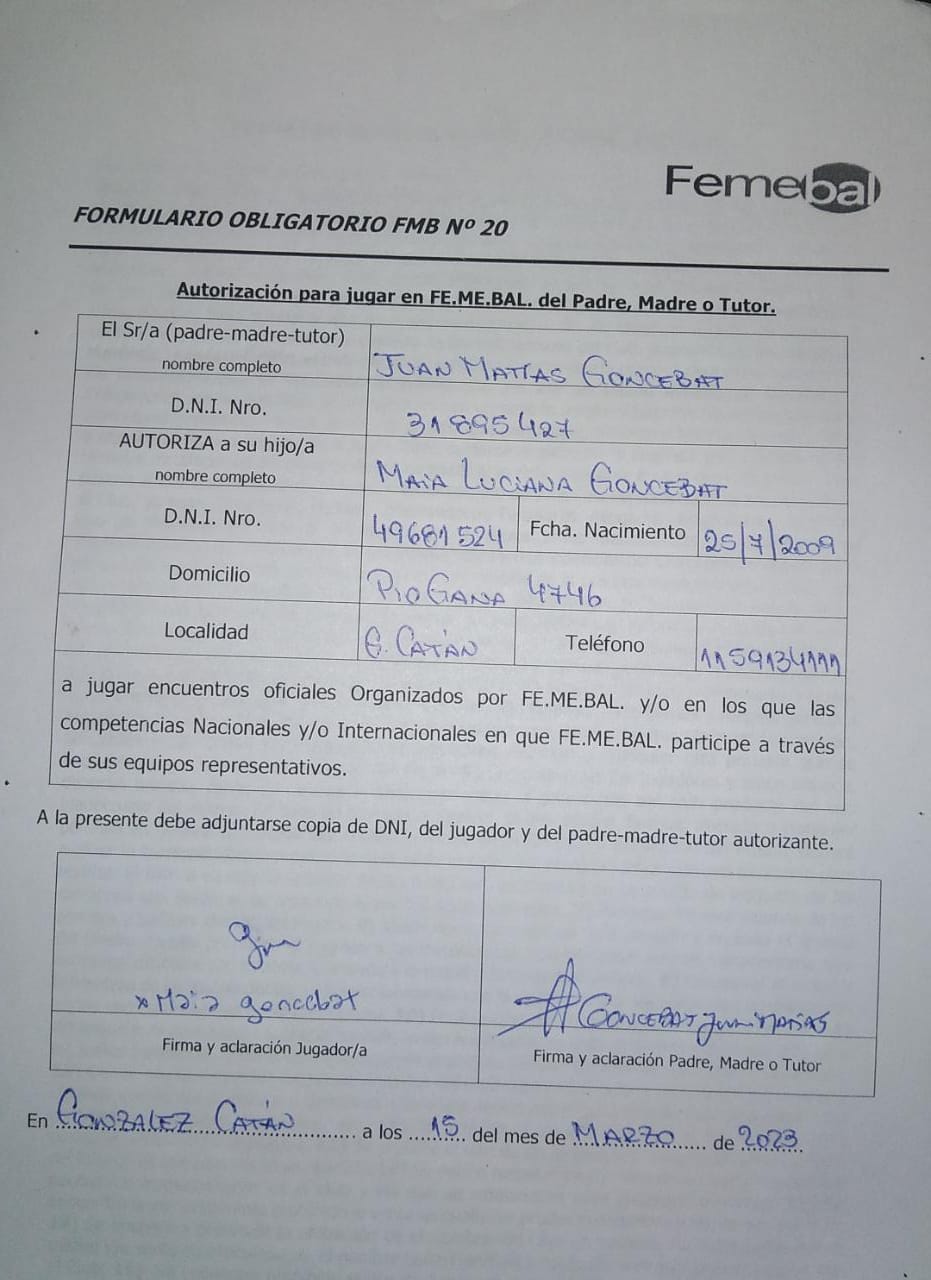 Femebal
FORMULARIO OBLIGATORIO FMB Nº 20
Autorización para jugar en FE.ME.BAL. del Padre, Madre o Tutor.
El Sr/a (padre-madre-tutor)
nombre completo
JUAN MATÍAS GONCEBAT
D.N.I. Nro.
31895427
AUTORIZA a su hijo/a
nombre completo
MAiA LUCIANA GONCEBAT
D.N.I. Nro.
49681524
Fcha. Nacimiento
25/7/2009
Domicilio
PIO GANA 4746
Localidad
G. CATÁN
Teléfono
1159134111
a jugar encuentros oficiales Organizados por FE.ME.BAL. y/o en los que las
competencias Nacionales y/o Internacionales en que FE.ME.BAL. participe a través
de sus equipos representativos.
A la presente debe adjuntarse copia de DNI, del jugador y del padre-madre-tutor autorizante.
x Maia goncebat
GONCEBAT Juan MATÍAS
Firma y aclaración Jugador/a
Firma y aclaración Padre, Madre o Tutor
En GONZALEZ CATÁN a los 15 del mes de MARZO de 2023